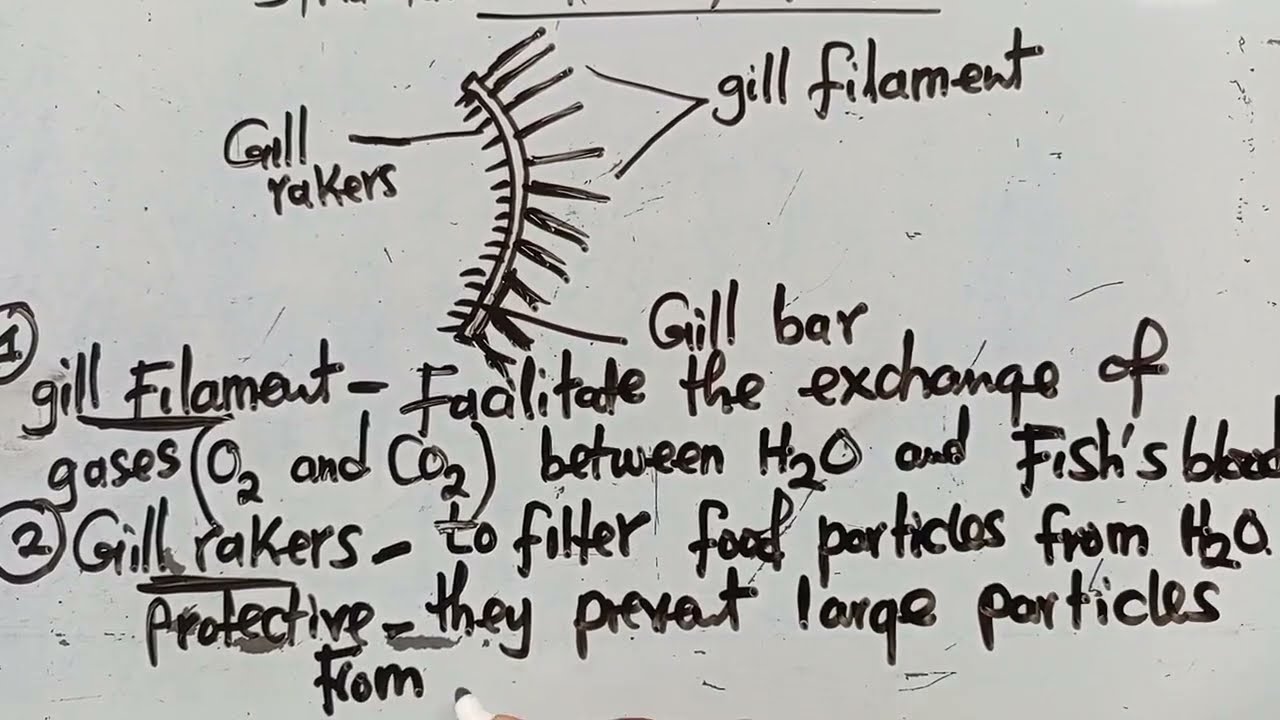 gill filament
Gill
rakers
Gill bar
1 gill Filament - Facilitate the exchange of
gases (O₂ and CO₂) between H₂O and Fish's blood
2 Gill rakers - to filter food particles from H₂O.
Protective - they prevent large particles
From